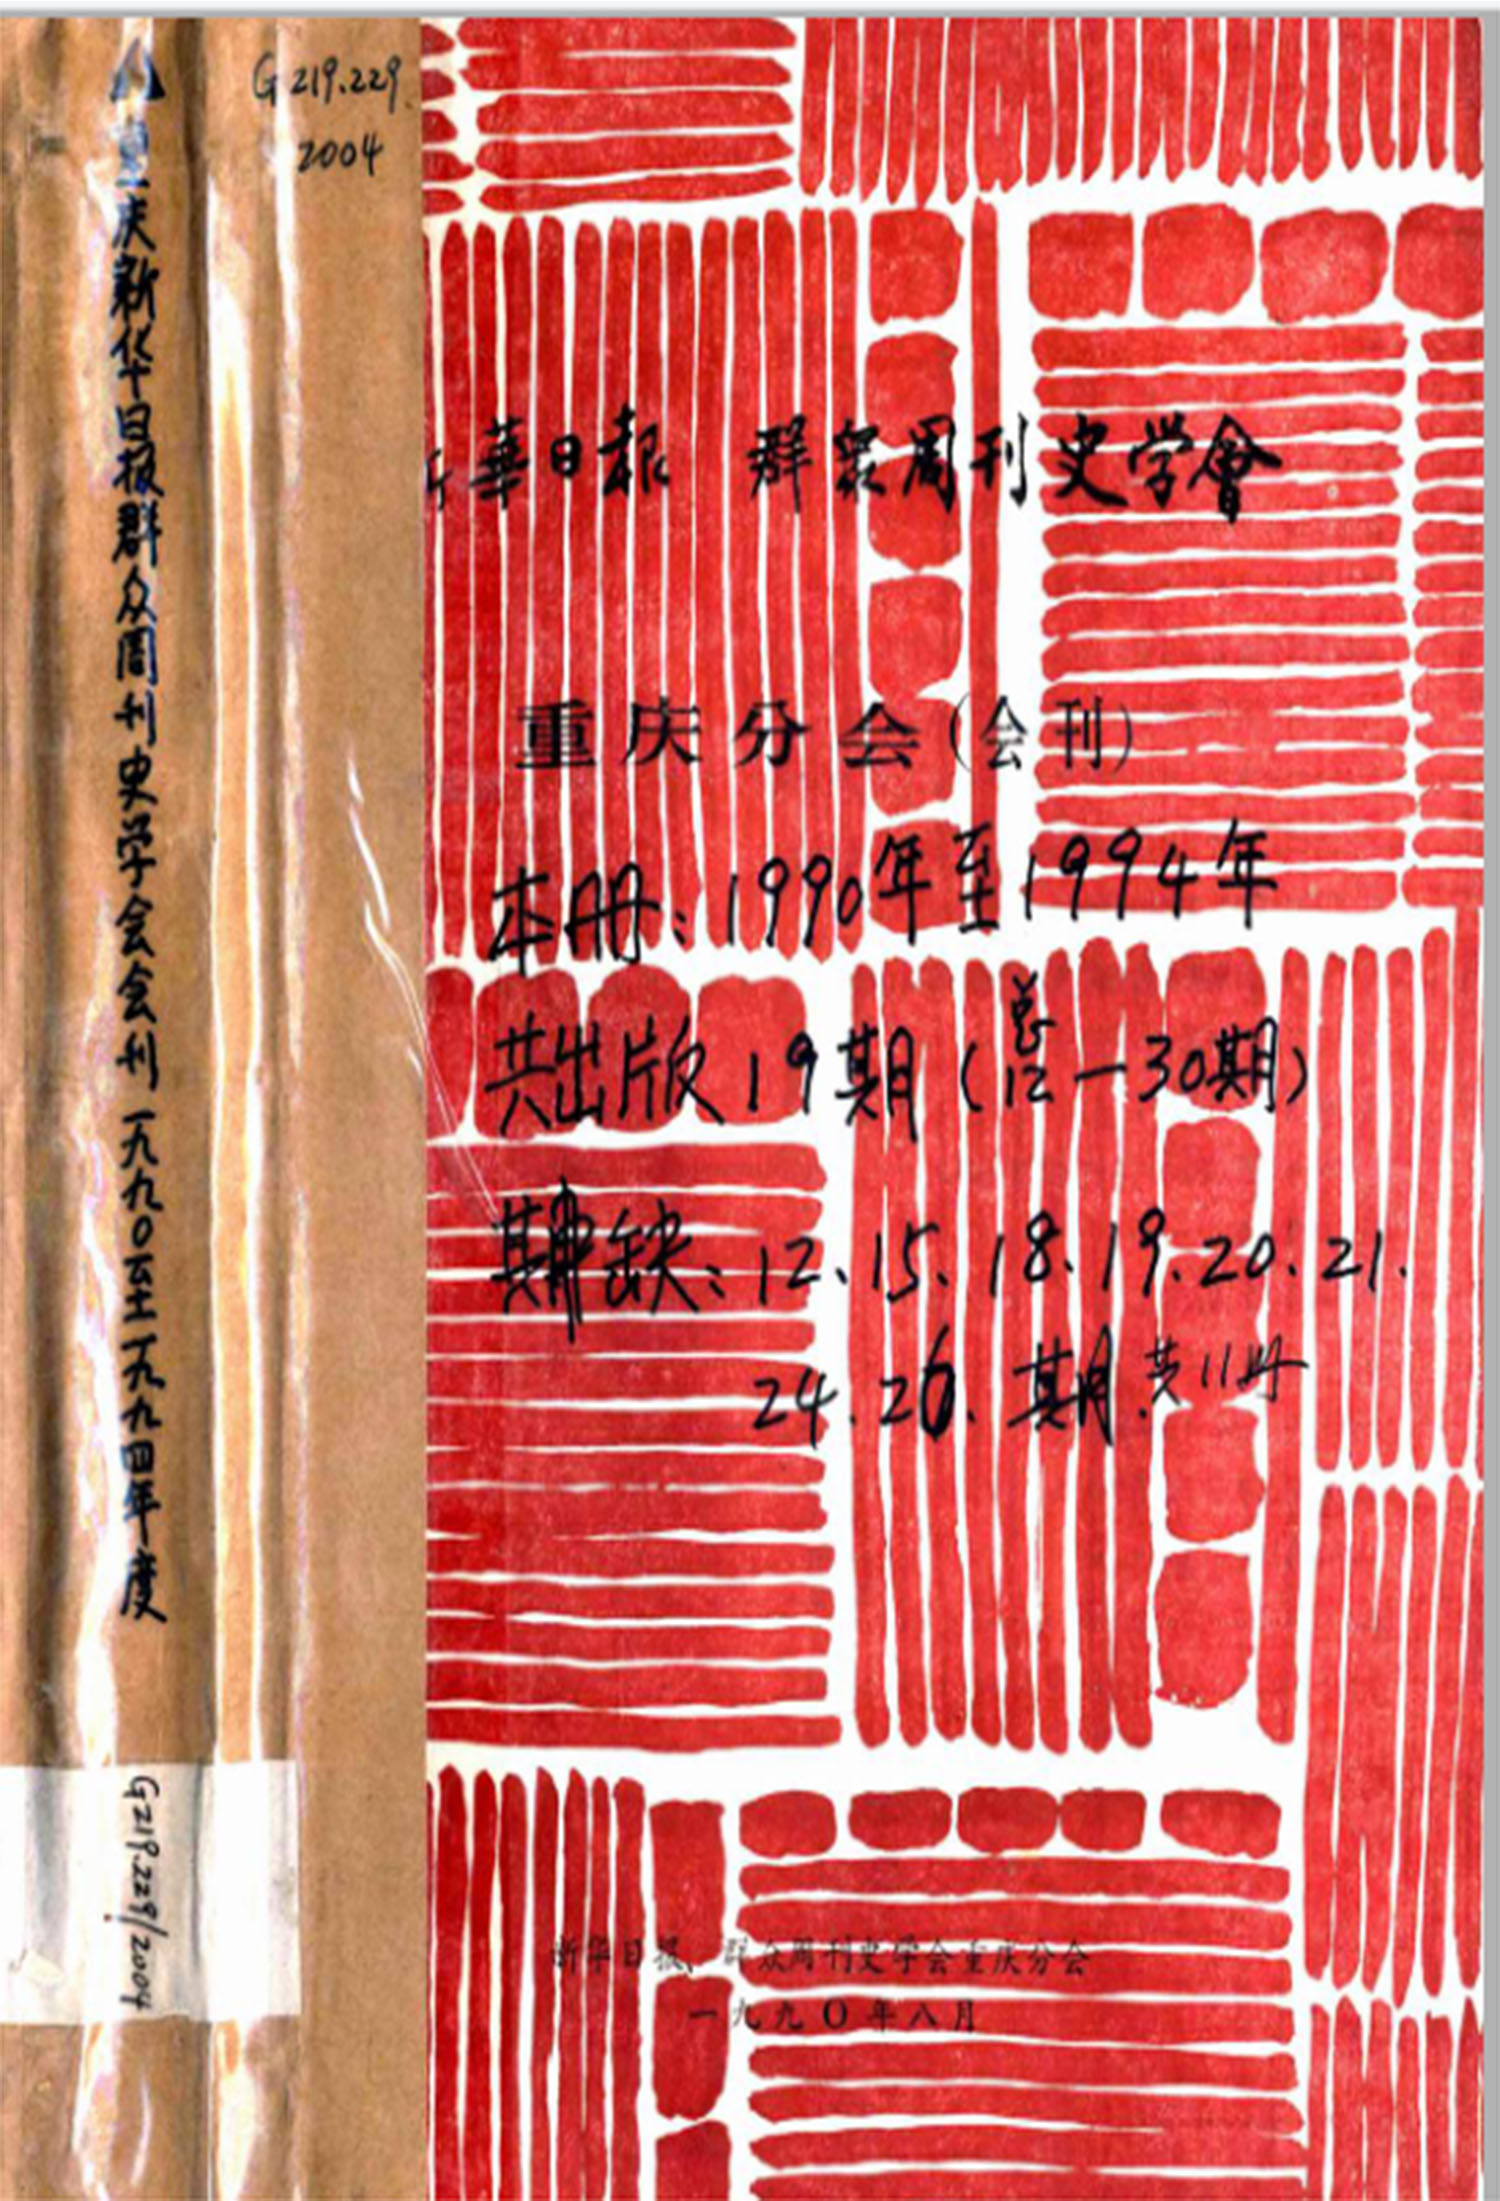 G219.229
2004
重庆新华日报群众周刊史学会会刊一九九〇至一九九四年度
G219.229/2004
新華日報 群衆周刊史学會
重庆分会(会刊)
本册:1990年至1994年
共出版19期(总12—30期)
期缺:12、15.18.19.20.21.
24.26.期.共11册
新华日报、群众周刊史学会重庆分会
一九九〇年八月